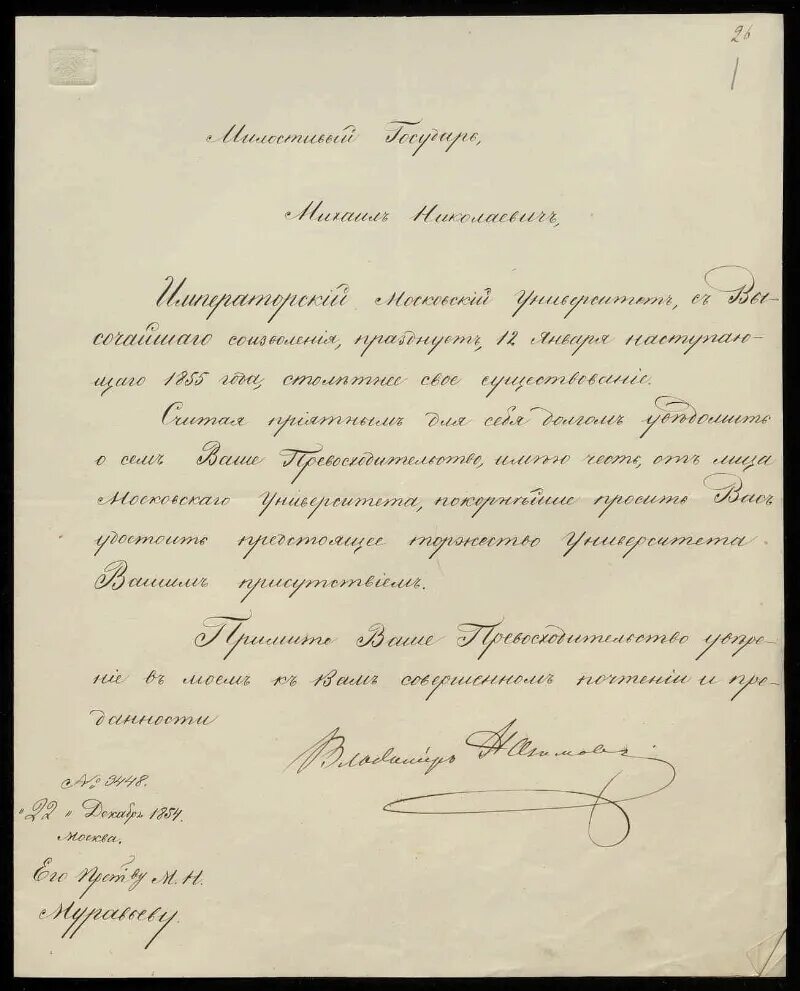 26
1
Милостивый Государь,
Михаилъ Николаевичъ,
Императорскій Московскій Университетъ, съ Вы-
сочайшаго соизволенія, празднуетъ, 12 Января наступаю-
щаго 1855 года, столѣтнее свое существованіе.
Считая пріятнымъ для себя долгомъ увѣдомить
о семъ Ваше Превосходительство, имѣю честь, отъ лица
Московскаго Университета, покорнѣйше просить Васъ
удостоить предстоящее торжество Университета
Вашимъ присутствіемъ.
Примите Ваше Превосходительство увѣре-
ніе въ моемъ къ Вамъ совершенномъ почтеніи и пре-
данности
Владиміръ Назимовъ.
№ 3448.
"22" Декабрь 1854.
Москва.
Его Прев̃тву М. Н.
Муравьеву.